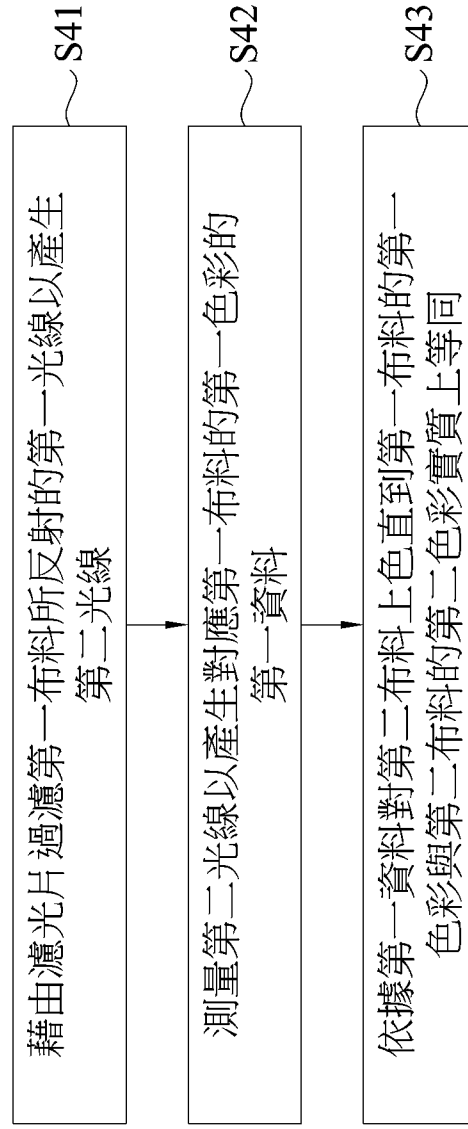 藉由濾光片過濾第一布料所反射的第一光線以產生
第二光線
S41
測量第二光線以產生對應第一布料的第一色彩的
第一資料
S42
依據第一資料對第二布料上色直到第一布料的第一
色彩與第二布料的第二色彩實質上等同
S43